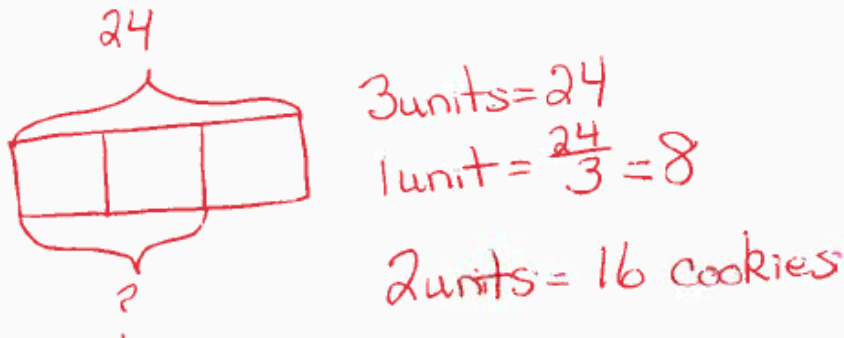 24
3units=24
1unit = 24/3 = 8
?
2units = 16 cookies